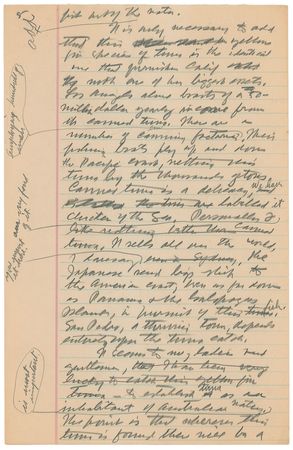 just only the
It is only necessary to add
that this yellow
fin species of tuna is the identical
one that furnishes Calif
the north one of her biggest assets.
Los Angeles alone boasts of a 30-
million dollar yearly income from
the canned tuna. There are a
number of canning factories. Their
fishing boats ply up and down
the Pacific coast, netting
tuna by the thousands of tons.
Canned tuna is a delicacy, &
tuna are labelled it
Chicken of the Sea. Personally I
like nothing better than canned
tuna. It sells all over the world,
I daresay, even in Sydney. The
Japanese send big ships to
the American coast, even as far down
as Panama & the Galapagos
Islands, in pursuit of this fish.
San Pedro, a thriving town, depends
entirely upon the tuna catch.
It seems to me, ladies and
gentlemen,
yellow fin
tuna to establish it as an
inhabitant of Australian waters.
The point is that wherever this
tuna is found there must be a
employing hundreds
are very fond
of it
is most
important